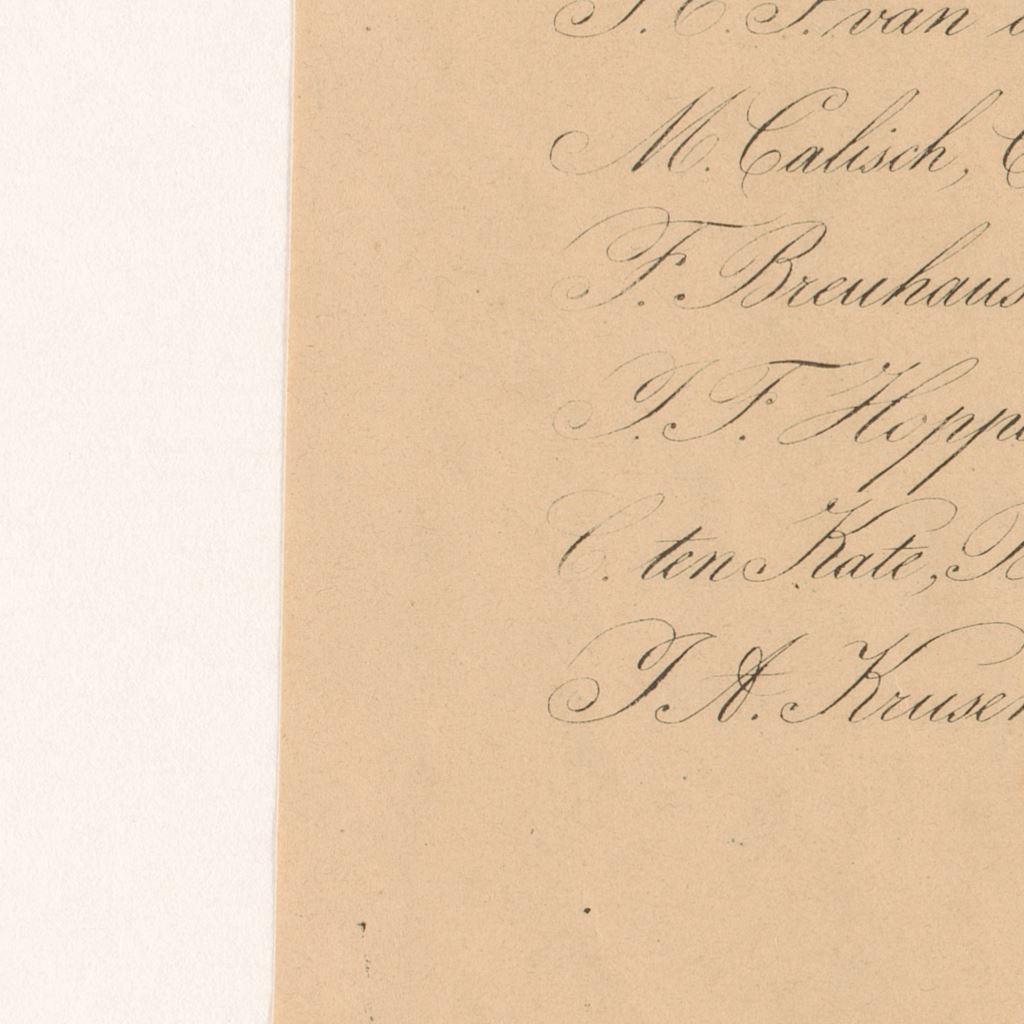 van
M. Calisch,
F. Breuhaus
J. F. Hoppe
C. ten Kate,
J. A. Krusem